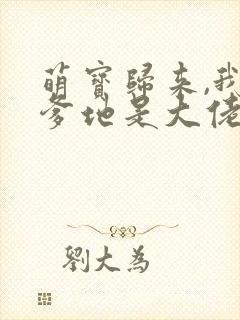 萌寶歸来,我
爹地是大佬
劉大為